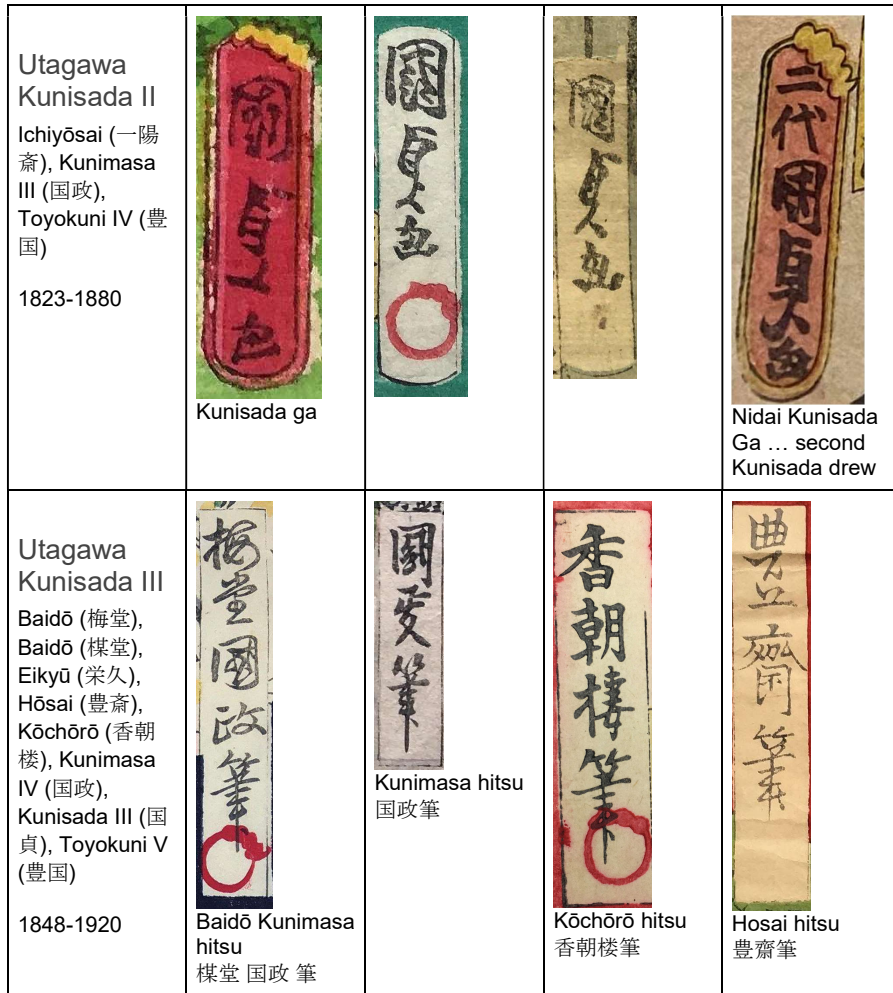 Utagawa
Kunisada II
Ichiyōsai (一陽
斎), Kunimasa
III (国政),
Toyokuni IV (豊
国)
1823-1880
國貞画
Kunisada ga
國貞画
國貞画
二代國貞画
Nidai Kunisada
Ga … second
Kunisada drew
Utagawa
Kunisada III
Baidō (梅堂),
Baidō (楳堂),
Eikyū (栄久),
Hōsai (豊斎),
Kōchōrō (香朝
楼), Kunimasa
IV (国政),
Kunisada III (国
貞), Toyokuni V
(豊国)
1848-1920
梅堂國政筆
Baidō Kunimasa
hitsu
楳堂 国政 筆
國政筆
Kunimasa hitsu
国政筆
香朝楼筆
Kōchōrō hitsu
香朝楼筆
豊齋筆
Hosai hitsu
豊齋筆